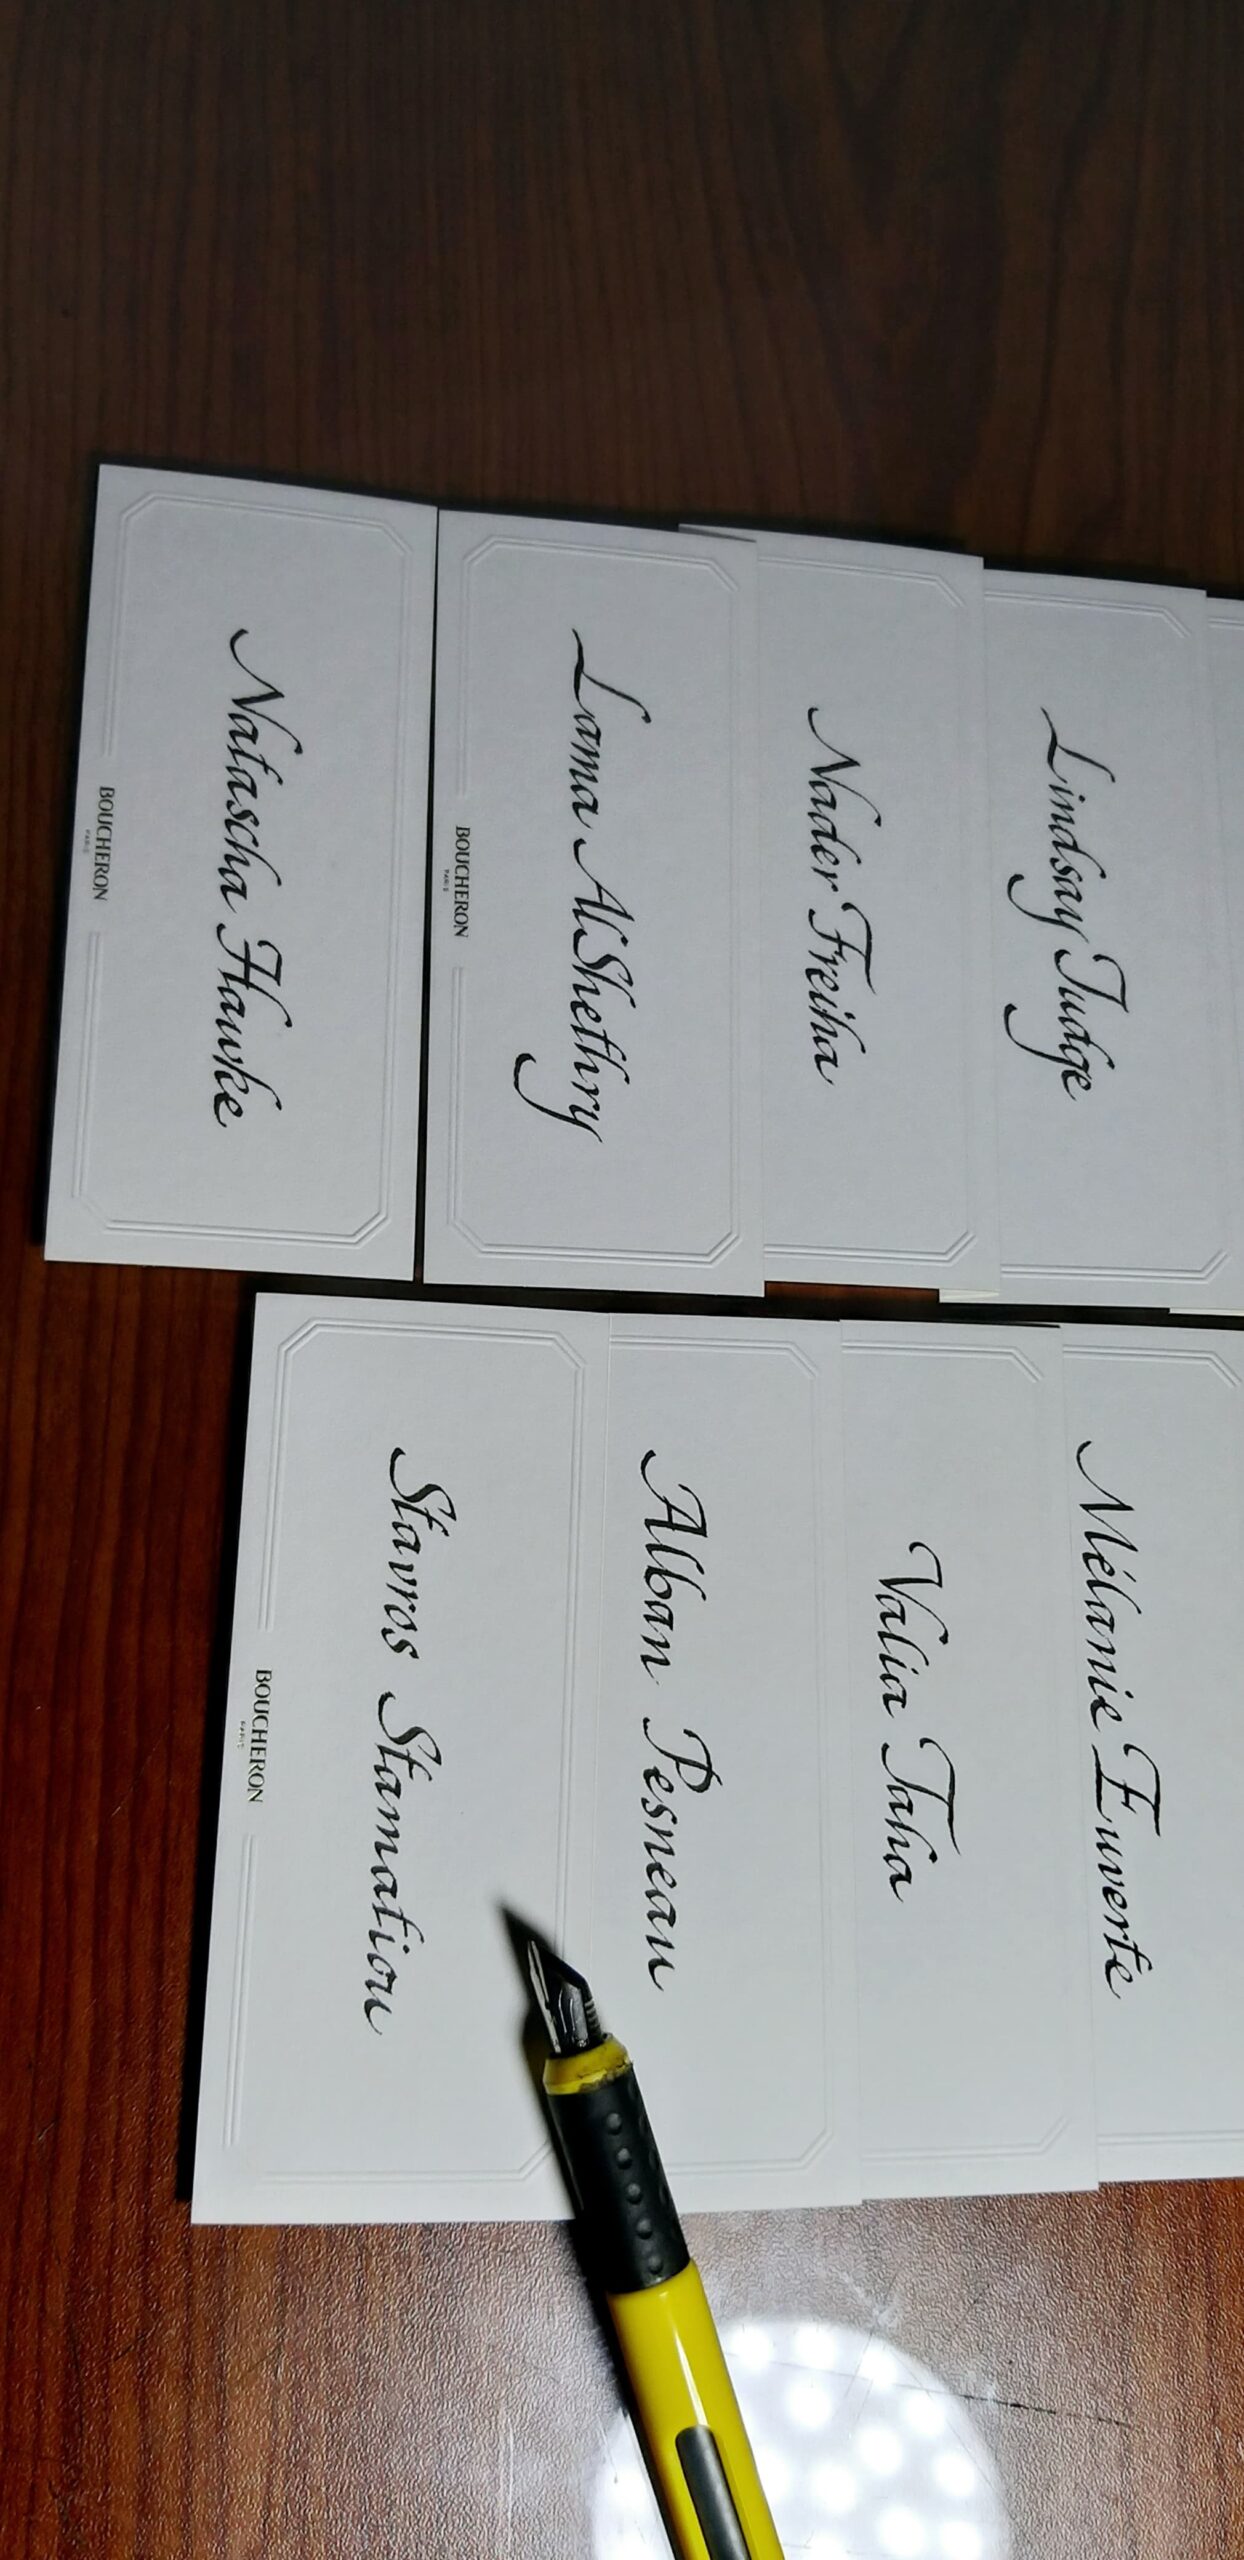 Lindsay Judge
Nader Freiha
Lama AlShethry
BOUCHERON
PARIS
Natascha Hawke
BOUCHERON
PARIS
Mélanie Euverte
Valia Taha
Alban Pesneau
Stavros Stamatiou
BOUCHERON
PARIS